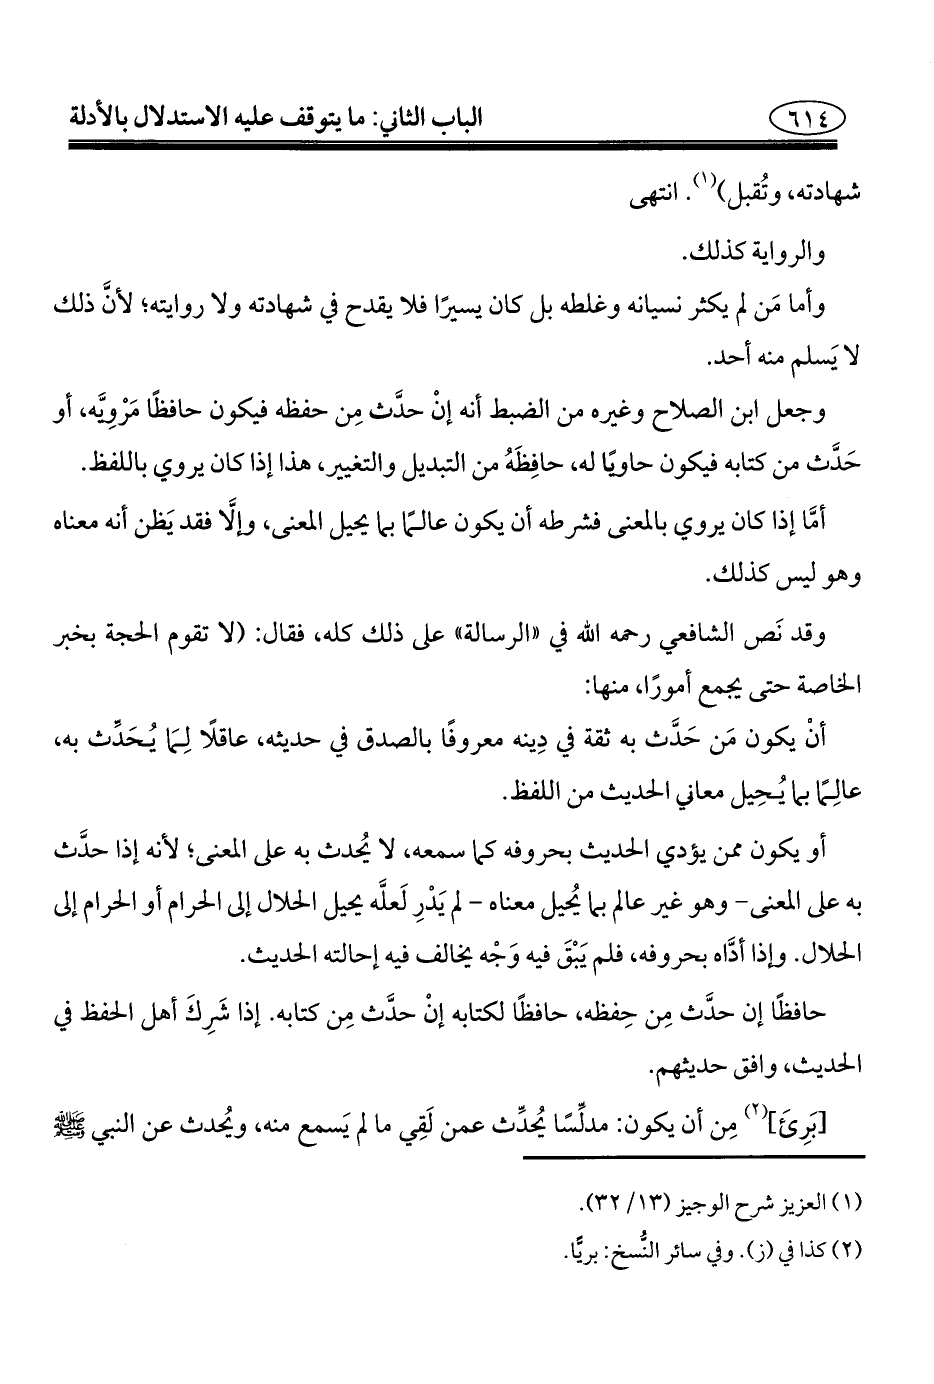 ٦١٤
الباب الثاني: ما يتوقف عليه الاستدلال بالأدلة
شهادته، وتُقبل)(١). انتهى
والرواية كذلك.
وأما مَن لم يكثر نسيانه وغلطه بل كان يسيرًا فلا يقدح في شهادته ولا روايته؛ لأنَّ ذلك
لا يَسلم منه أحد.
وجعل ابن الصلاح وغيره من الضبط أنه إنْ حدَّث مِن حفظه فيكون حافظًا مَرْوِيَّه، أو
حَدَّث من كتابه فيكون حاويًا له، حافِظَهُ من التبديل والتغيير، هذا إذا كان يروي باللفظ.
أمَّا إذا كان يروي بالمعنى فشرطه أن يكون عالـمًا بما يحيل المعنى، وإلَّا فقد يَظن أنه معناه
وهو ليس كذلك.
وقد نَص الشافعي رحمه الله في «الرسالة» على ذلك كله، فقال: (لا تقوم الحجة بخبر
الخاصة حتى يجمع أمورًا، منها:
أنْ يكون مَن حَدَّث به ثقة في دِينه معروفًا بالصدق في حديثه، عاقلًا لِمَا يُـحَدِّث به،
عالِمًا بما يُـحِيل معاني الحديث من اللفظ.
أو يكون ممن يؤدي الحديث بحروفه كما سمعه، لا يُحدث به على المعنى؛ لأنه إذا حدَّث
به على المعنى- وهو غير عالم بما يُحيل معناه - لم يَدْرِ لَعلَّه يحيل الحلال إلى الحرام أو الحرام إلى
الحلال. وإذا أدَّاه بحروفه، فلم يَبْقَ فيه وَجْه يخالف فيه إحالته الحديث.
حافظًا إن حدَّث مِن حِفظه، حافظًا لكتابه إنْ حدَّث مِن كتابه. إذا شَرِكَ أهل الحفظ في
الحديث، وافق حديثهم.
[بَرِئَ](٢) مِن أن يكون: مدلِّسًا يُحدِّث عمن لَقِي ما لم يَسمع منه، ويُحدث عن النبي ﷺ
(١) العزيز شرح الوجيز (١٣/ ٣٢).
(٢) كذا في (ز). وفي سائر النُّسخ: بريًّا.